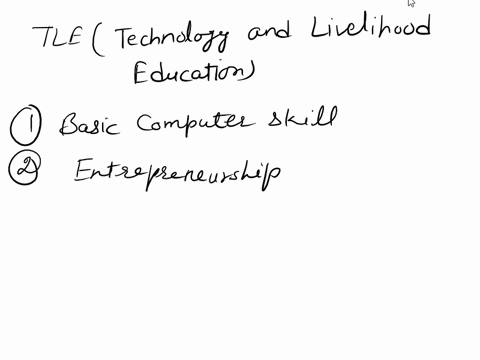 TLE ( Technology and Livelihood
Education)
① Basic Computer skill
② Entrepreneurship